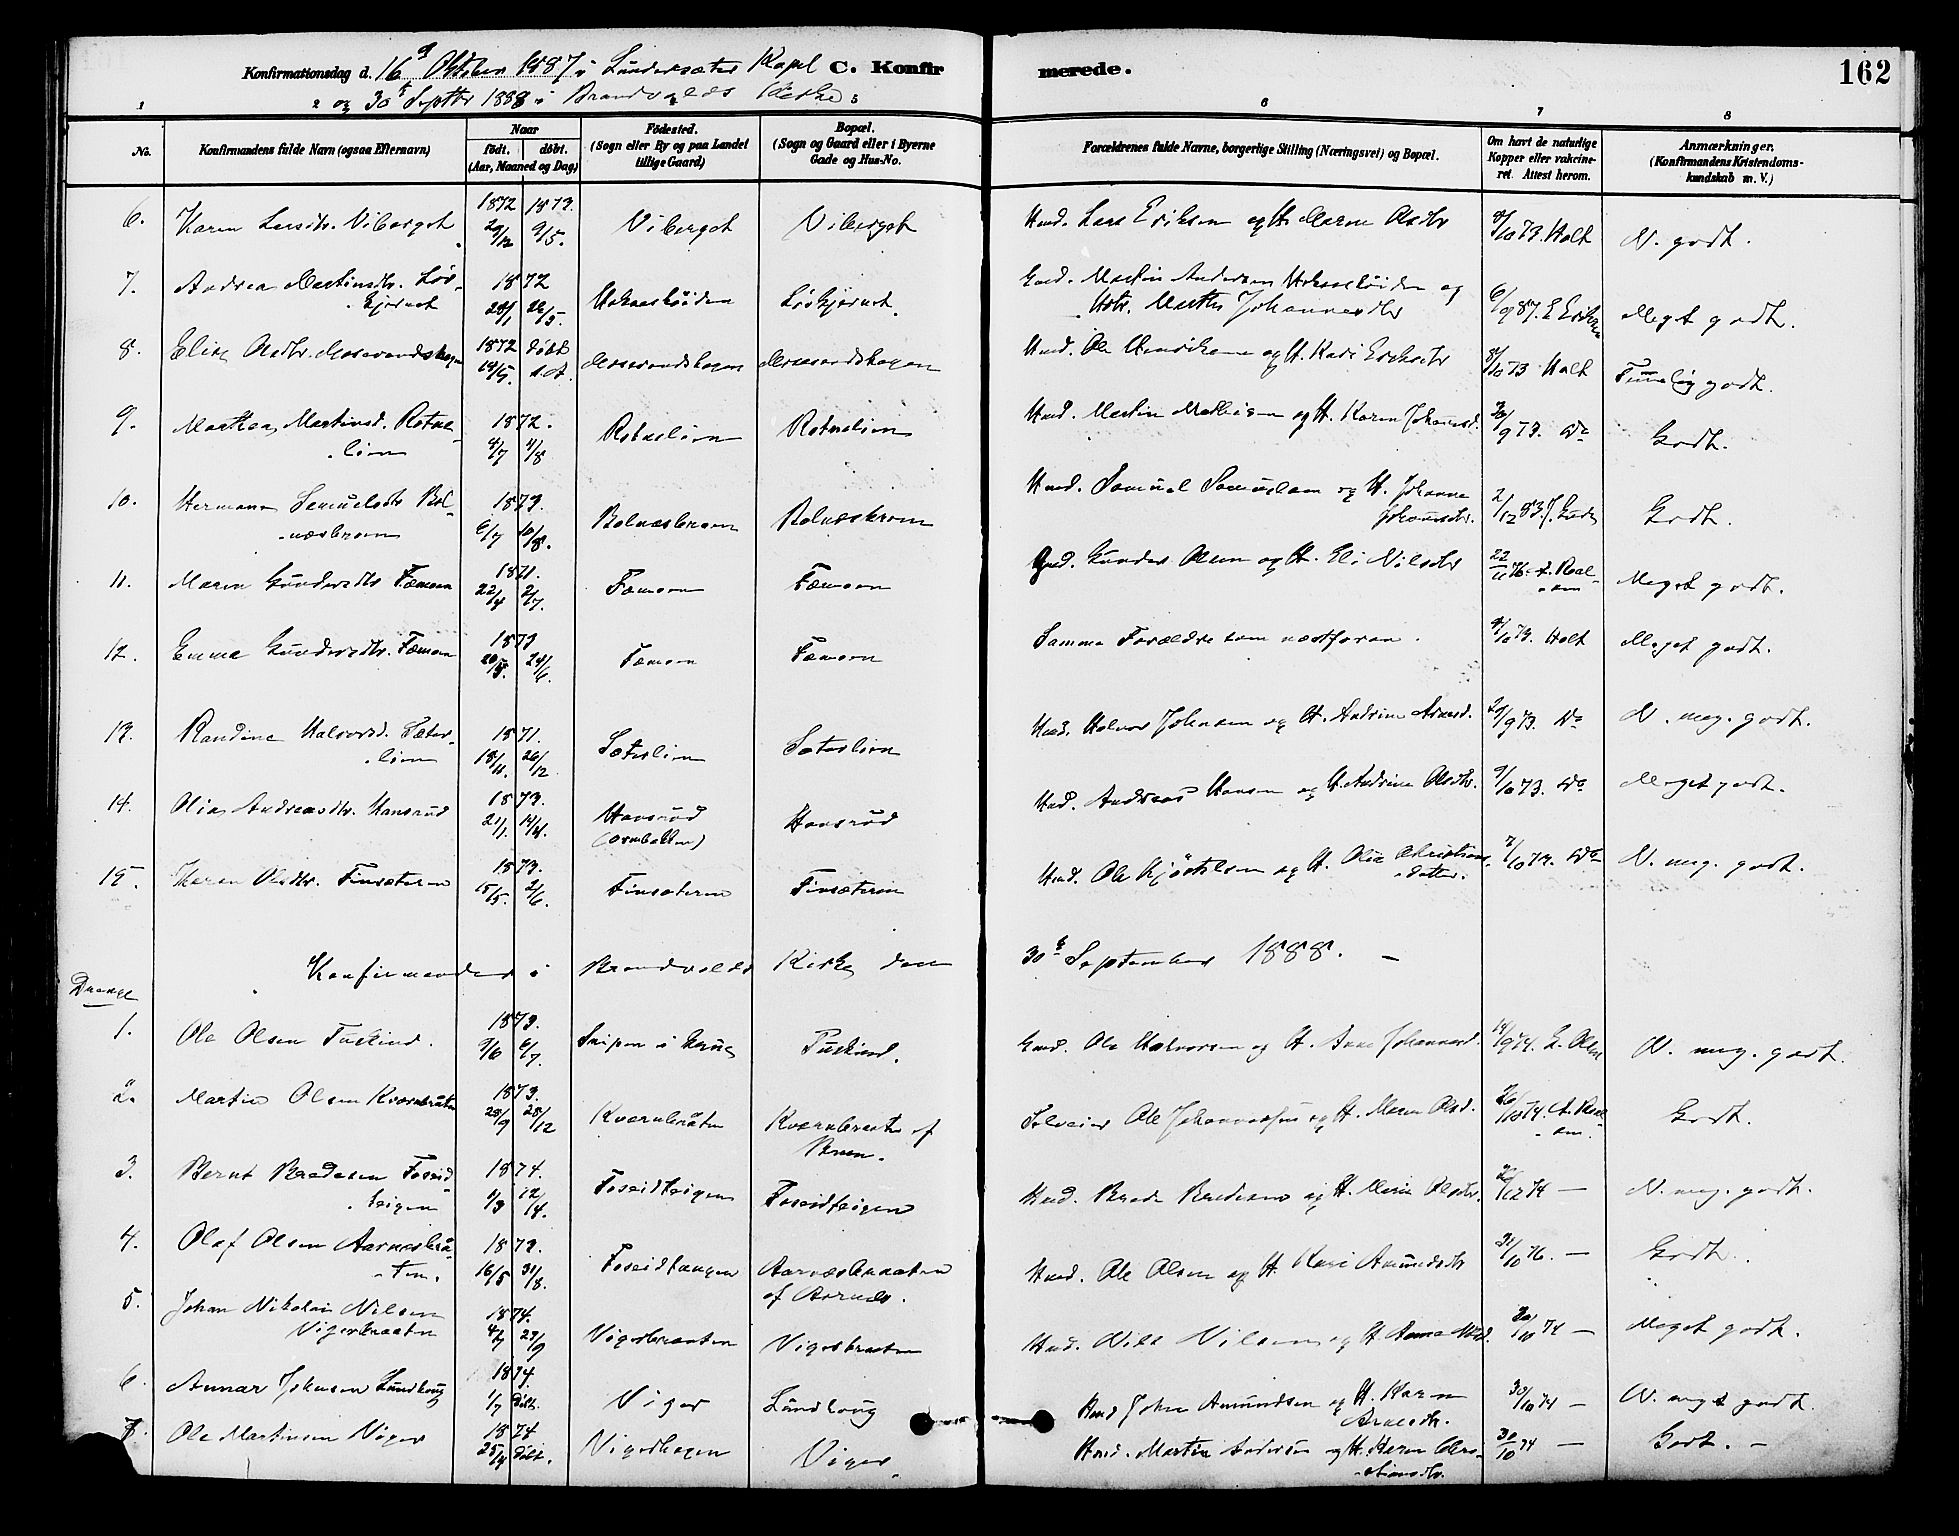 Konfirmationsdag d. 16de Oktober 1887 i Lundersæter Kapel C. Konfirmerede. 162
og 30te Septbr 1888 i Brandvolds Kirke
1 2 5 6 7 8
No. Konfirmandens fulde Navn (ogsaa Efternavn) Naar født. døbt. (Aar, Maaned og Dag) Fødested. (Sogn eller By og paa Landet tillige Gaard) Bopæl. (Sogn og Gaard eller i Byerne Gade og Hus-No. Forældrenes fulde Navne, borgerlige Stilling (Næringsvei) og Bopæl. Om havt de naturlige Kopper eller vakcineret. Attest herom. Anmærkninger. (Konfirmandens Kristendomskundskab m. V.)
6. Karen Larsdtr. Viberget 1872 29/12 1873. 9/5. Viberget Viberget Hmd. Lars Eriksen og H. Maren Olsdtr 8/10 73. Holt N. godt.
7. Andrea Martinsdtr. Løvkjernet 1872 28/1 26/5. Løvkjernet. Gmd. Martin Andersen og Hstr. Marthe Johannesdtr 6/9 87. E. Meget godt.
8. Elise Olsdtr. Mosevandskogen 1872 19/5. døbt s. A. Mosevandskogen Mosevandskogen Hmd. Ole Henriksen og H. Kari 8/10 73 Holt Temelig godt.
9. Marthea Martinsd. Rotnelien 1872. 4/7 4/8 Rotnelien Rotnelien Hmd. Martin Mathisen og H. Karen Johannesd. 30/9 73. Do Godt.
10. Hermana Samuelsdtr Rolnæsbroen 1873. 6/7 10/8. Rolnæsbroen Rolnæsbroen Hmd. Samuel Samuelsen og H. Johanne Johannesdtr. 2/12 83. Godt.
11. Maren Gundersdtr Fæmoen 1871. 22/4 2/7. Fæmoen Fæmoen Gmd. Gunder Olsen og H. Eli Nilsdtr 22/11 76. Meget godt.
12. Emma Gundersdtr. Fæmoen 1873 20/5. 24/6. Fæmoen Fæmoen Samme Forældre som næstforan. 8/10 73. Holt Meget godt.
13. Randine Halvorsd. Sæterlien 1871. 18/11. 26/12 Sæterlien Sæterlien Hmd. Halvor Johnsen og H. Andrine Arnesd. 29/9 73. Do N. meg. godt.
14. Olia Andreasdtr. Hansrud 1873. 21/1. 14/4. Hansrud Hansrud Hmd. Andreas Hansen og H. Andrine Olsdtr. 9/10 73. Do Meget godt.
15. Karen Olsdtr. Finsæteren 1873. 15/5. 2/6. Finsæteren Finsæteren Hmd. Ole Kjøstelsen og H. Olia Christiansdatter. 7/10 74. Do N. meg. godt.
Konfirmander i Brandvolds Kirke den 30te September 1888. -
Drenge
1. Ole Olsen Tuskind. 1873. 9/6 6/7. Tuskind. Gmd. Ole Halvorsen og H. Anne Johannesd. 14/9 74. E. Olsen N. meg. godt.
2. Martin Olsen Kværnbråten 1873. 28/9 28/12 Kværnbråten Kværnbraaten af Selveier Ole Johannessen og H. Maren Olsd. 26/10 74. Godt.
3. Bernt Bredesen Foseidteigen 1874. 1/3 12/4. Foseidteigen Foseidteigen Hmd. Brede Bredesen og H. Marie Olsdtr. 12 74 — N. meg. godt.
4. Olaf Olsen Aarnesbråten. 1873. 16/5 31/8. Foseidtangen Aarnæsbraaten af Aarnes. Hmd. Ole Olsen og H. Kari Amundsdtr 31/10 76. — Godt.
5. Johan Nikolai Nilsen Vigerbraaten 1874. 4/7 27/9 Vigerbraaten Vigerbraaten Hmd. Nils Nilsen og H. Anna 30/10 74 — Meget godt.
6. Annar Johnsen Lundhoug 1874. 1/7 døbt. Viger Lundhoug Hmd John Amundsen og H. Karen Arnesdtr. 30/10 74 — N. meget godt.
7. Ole Martinsen Viger 1874 25/4 døbt. Vigerhagen Viger. Hmd. Martin Andersen og H. Karen 30/10 74 — Godt. -